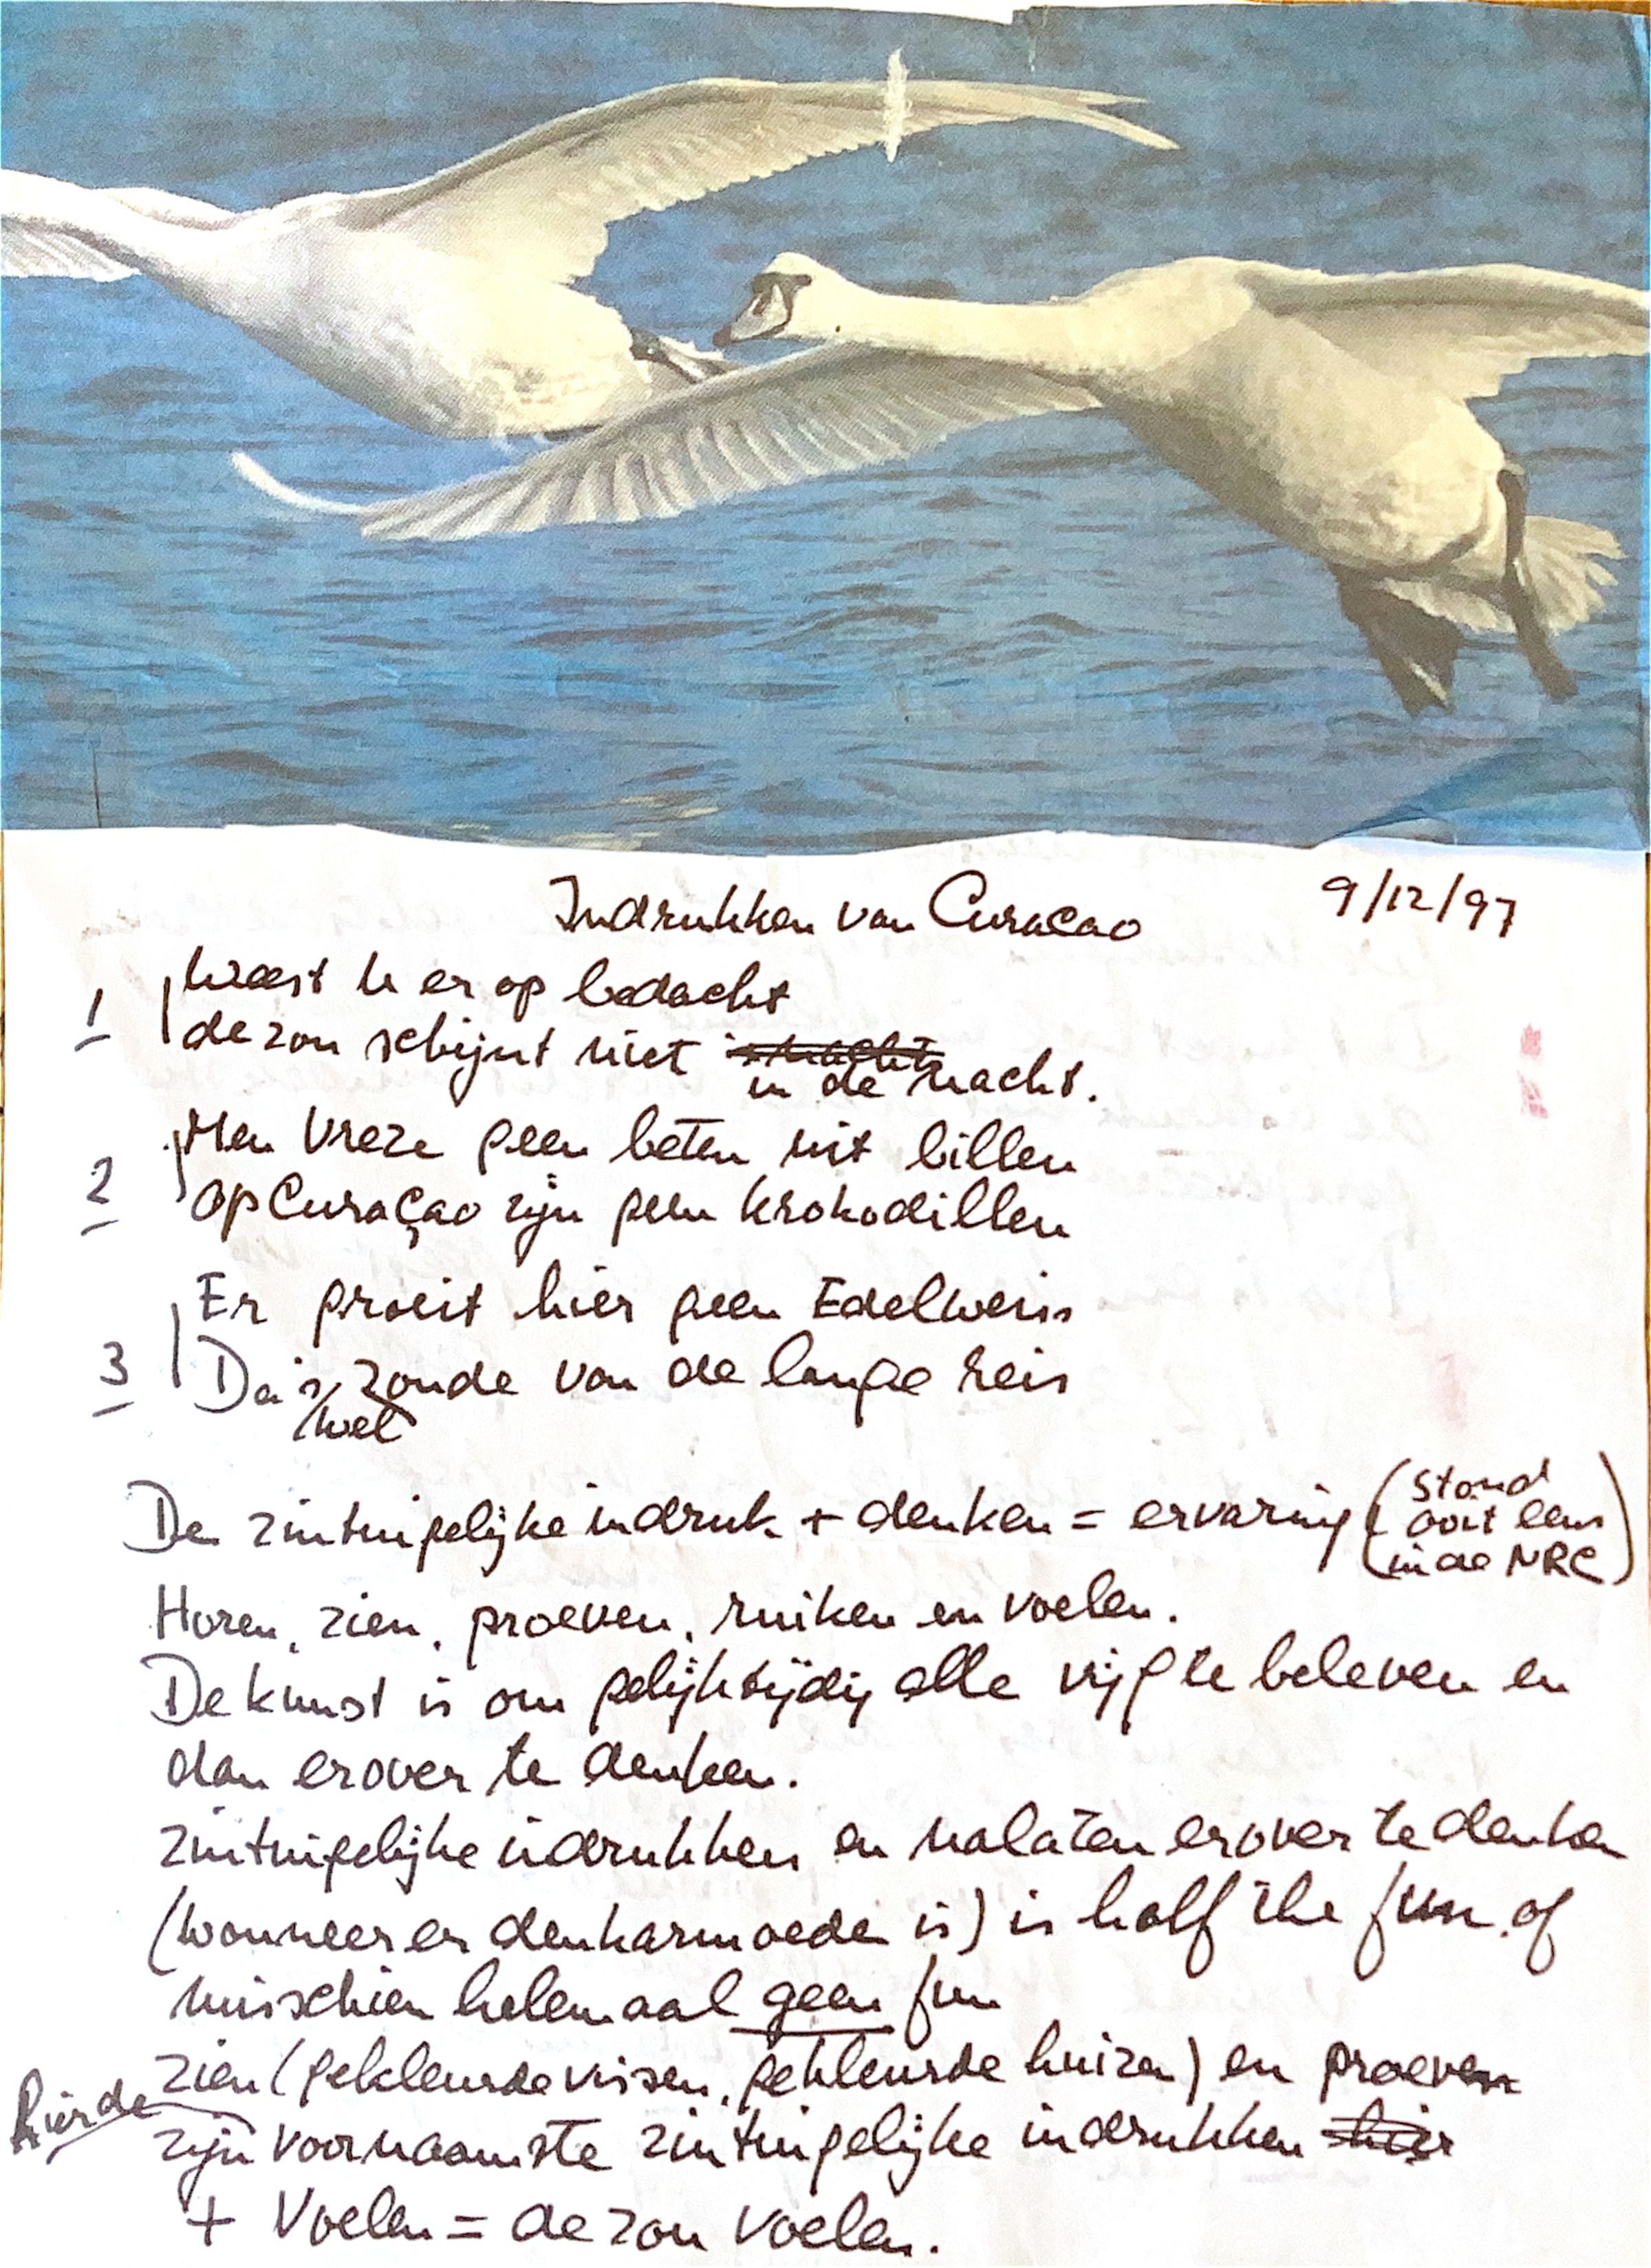 Indrukken van Curacao
9/12/97
1
Weest u er op bedacht
de zon schijnt niet
in de nacht.
2
Men vreze geen beten uit billen
op Curaçao zijn geen krokodillen
3
Er groeit hier geen Edelweiss
Da is zonde van de lange reis
wel
De zintuigelijke indruk + denken = ervaring (stond
ooit eens
in de NRC)
Horen, zien, proeven, ruiken en voelen.
De kunst is om gelijktijdig alle vijf te beleven en
dan erover te denken.
zintuigelijke indrukken en nalaten erover te denken
(wanneer er denkarmoede is) is half the fun of
misschien helemaal geen fun
zien (gekleurde vissen, gekleurde huizen) en proeven
zijn voornaamste zintuigelijke indrukken hier
+ Voelen = de zon voelen.